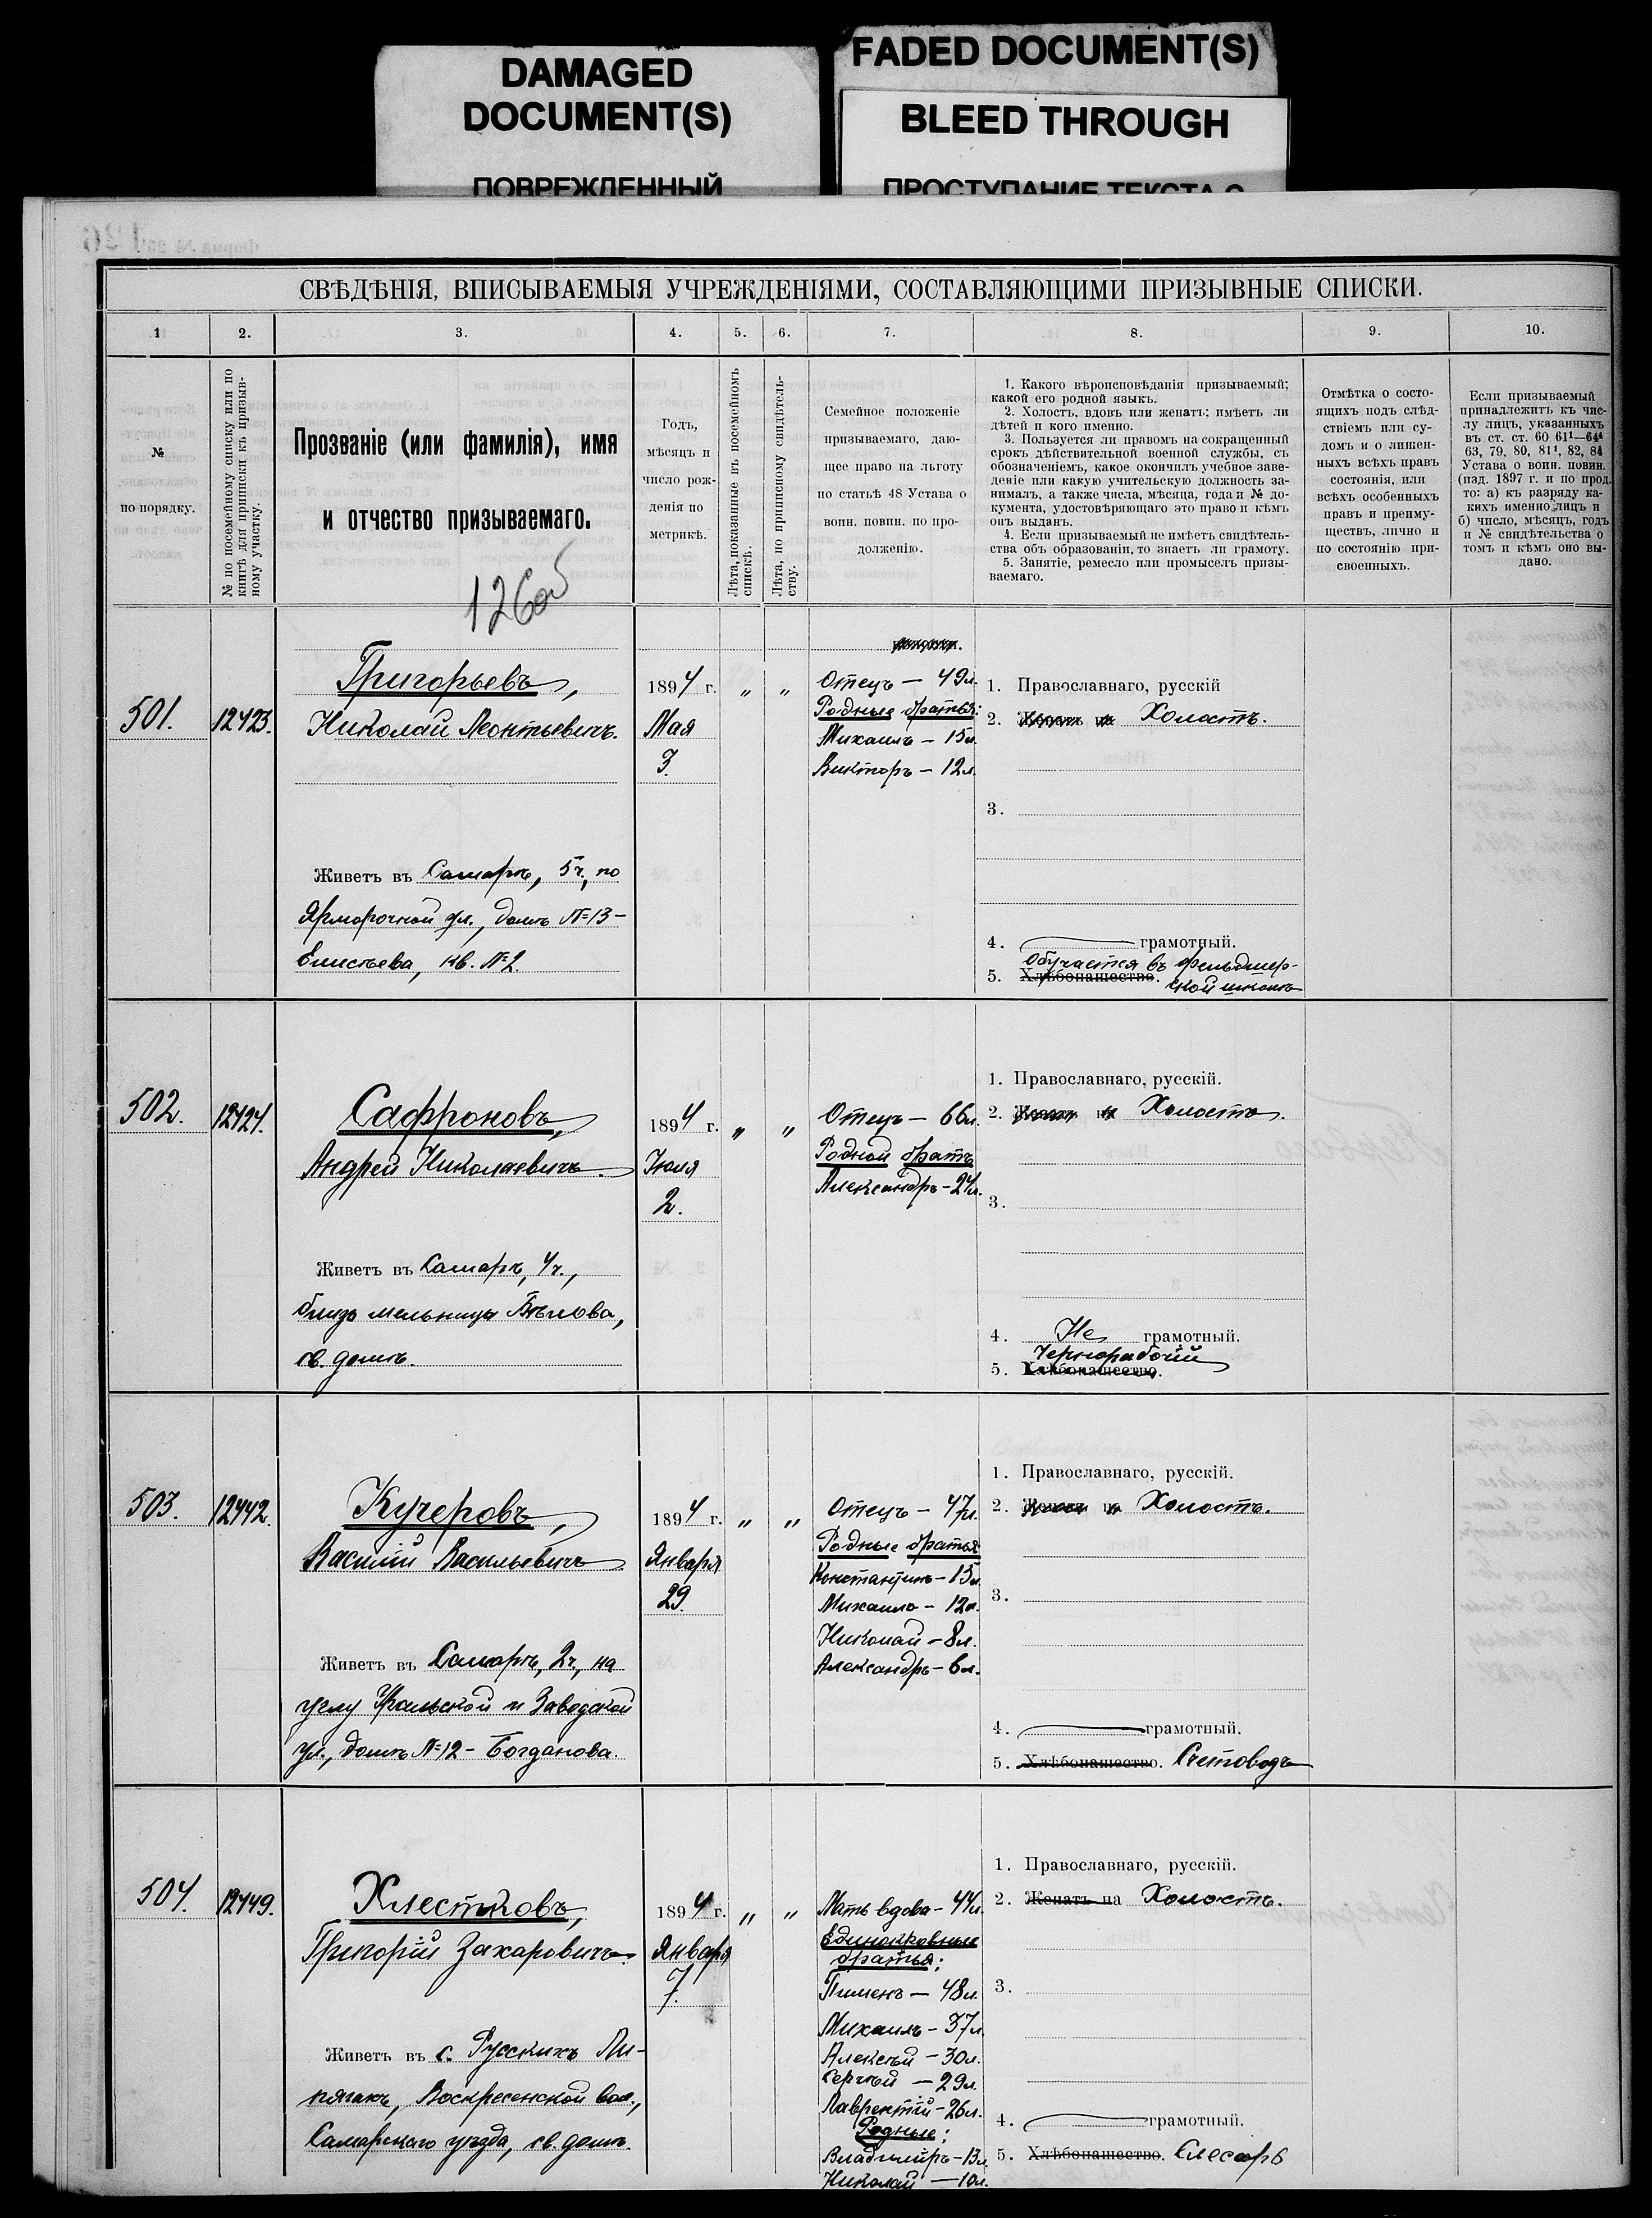 DAMAGED
DOCUMENT(S)
ПОВРЕЖДЕННЫЙ
FADED DOCUMENT(S)
BLEED THROUGH
ПРОСТУПАНИЕ ТЕКСТА С
СВѢДѢНІЯ, ВПИСЫВАЕМЫЯ УЧРЕЖДЕНІЯМИ, СОСТАВЛЯЮЩИМИ ПРИЗЫВНЫЕ СПИСКИ.
1 2. 3. 4. 5. 6. 7. 8. 9. 10.
№
по порядку.
№ по посемейному списку или по
книгѣ для приписки къ призыв-
ному участку.
Прозваніе (или фамилія), имя
и отчество призываемаго.
126об
Годъ,
мѣсяцъ и
число рож-
денія по
метрикѣ.
Лѣта, показанные въ посемейномъ
спискѣ.
Лѣта, по приписному свидѣтель-
ству.
Семейное положеніе
призываемаго, даю-
щее право на льготу
по статьѣ 48 Устава о
воин. повин. по про-
долженію.
1. Какого вѣроисповѣданія призываемый;
какой его родной языкъ.
2. Холостъ, вдовъ или женатъ; имѣетъ ли
дѣтей и кого именно.
3. Пользуется ли правомъ на сокращенный
срокъ дѣйствительной военной службы, съ
обозначеніемъ, какое окончилъ учебное заве-
деніе или какую учительскую должность за-
нималъ, а также числа, мѣсяца, года и № до-
кумента, удостовѣряющаго это право и кѣмъ
онъ выданъ.
4. Если призываемый не имѣетъ свидѣтель-
ства объ образованіи, то знаетъ ли грамоту.
5. Занятіе, ремесло или промыселъ призы-
ваемаго.
Отмѣтка о состо-
ящихъ подъ слѣд-
ствіемъ или су-
домъ и о лишен-
ныхъ всѣхъ правъ
состоянія, или
всѣхъ особенныхъ
правъ и преиму-
ществъ, лично и
по состоянію при-
своенныхъ.
Если призываемый
принадлежитъ къ чис-
лу лицъ, указанныхъ
въ ст. ст. 60 61¹—64⁴
63, 79, 80, 81¹, 82, 84
Устава о воин. повин.
(изд. 1897 г. и по прод.
то: а) къ разряду ка-
кихъ именно лицъ и
б) число, мѣсяцъ, годъ
и № свидѣтельства о
томъ и кѣмъ оно вы-
дано.
501. 12423.
Григорьевъ,
Николай Леонтьевичъ.
Живетъ въ Самарѣ, 5 ч., по
Ярмарочной ул., домъ №13-
Елисѣева, кв. №2.
1894 г. „ „
Мая
3.
Отецъ — 49л.
Родные братья:
Михаилъ — 15л.
Викторъ — 12л.
1. Православнаго, русскій
2. Женатъ на Холостъ.
3.
4. грамотный.
Обучается въ фельдшер-
5. Хлѣбопашество. ской школѣ
502. 12424.
Сафроновъ,
Андрей Николаевичъ.
Живетъ въ Самарѣ, 4 ч.,
близъ мельницы Бѣлова,
св. домъ.
1894 г. „ „
Іюля
2.
Отецъ — 66л.
Родной братъ
Александръ — 24л.
1. Православнаго, русскій.
2. Женатъ на Холостъ.
3.
4. Не грамотный.
Чернорабочій
5. Хлѣбопашество.
503. 12442.
Кучеровъ,
Василій Васильевичъ.
Живетъ въ Самарѣ, 2 ч., на
углу Уральской и Заводской
ул., домъ №12 - Богданова.
1894 г. „ „
Января
29.
Отецъ — 47л.
Родные братья
Константинъ — 15л.
Михаилъ — 12л.
Николай — 8л.
Александръ — 6л.
1. Православнаго, русскій.
2. Женатъ на Холостъ.
3.
4. грамотный.
5. Хлѣбопашество. Счетоводъ
504. 12449.
Хлестковъ,
Григорій Захаровичъ.
Живетъ въ с. Русскихъ Ли-
пягахъ, Воскресенской вол.,
Самарскаго уѣзда, св. домъ.
1894 г. „ „
Января
7.
Мать вдова — 44л.
Единокровные
братья:
Пименъ — 48л.
Михаилъ — 37л.
Алексѣй — 30л.
Сергѣй — 29л.
Лаврентій — 26л.
Родные:
Владиміръ — 13л.
Николай — 10л.
1. Православнаго, русскій.
2. Женатъ на Холостъ.
3.
4. грамотный.
5. Хлѣбопашество. Слесарь